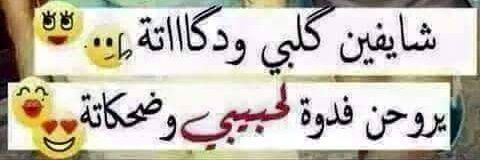 شايفين گلبي ودگاااتة
يروحن فدوة لحبيبي وضحكاتة